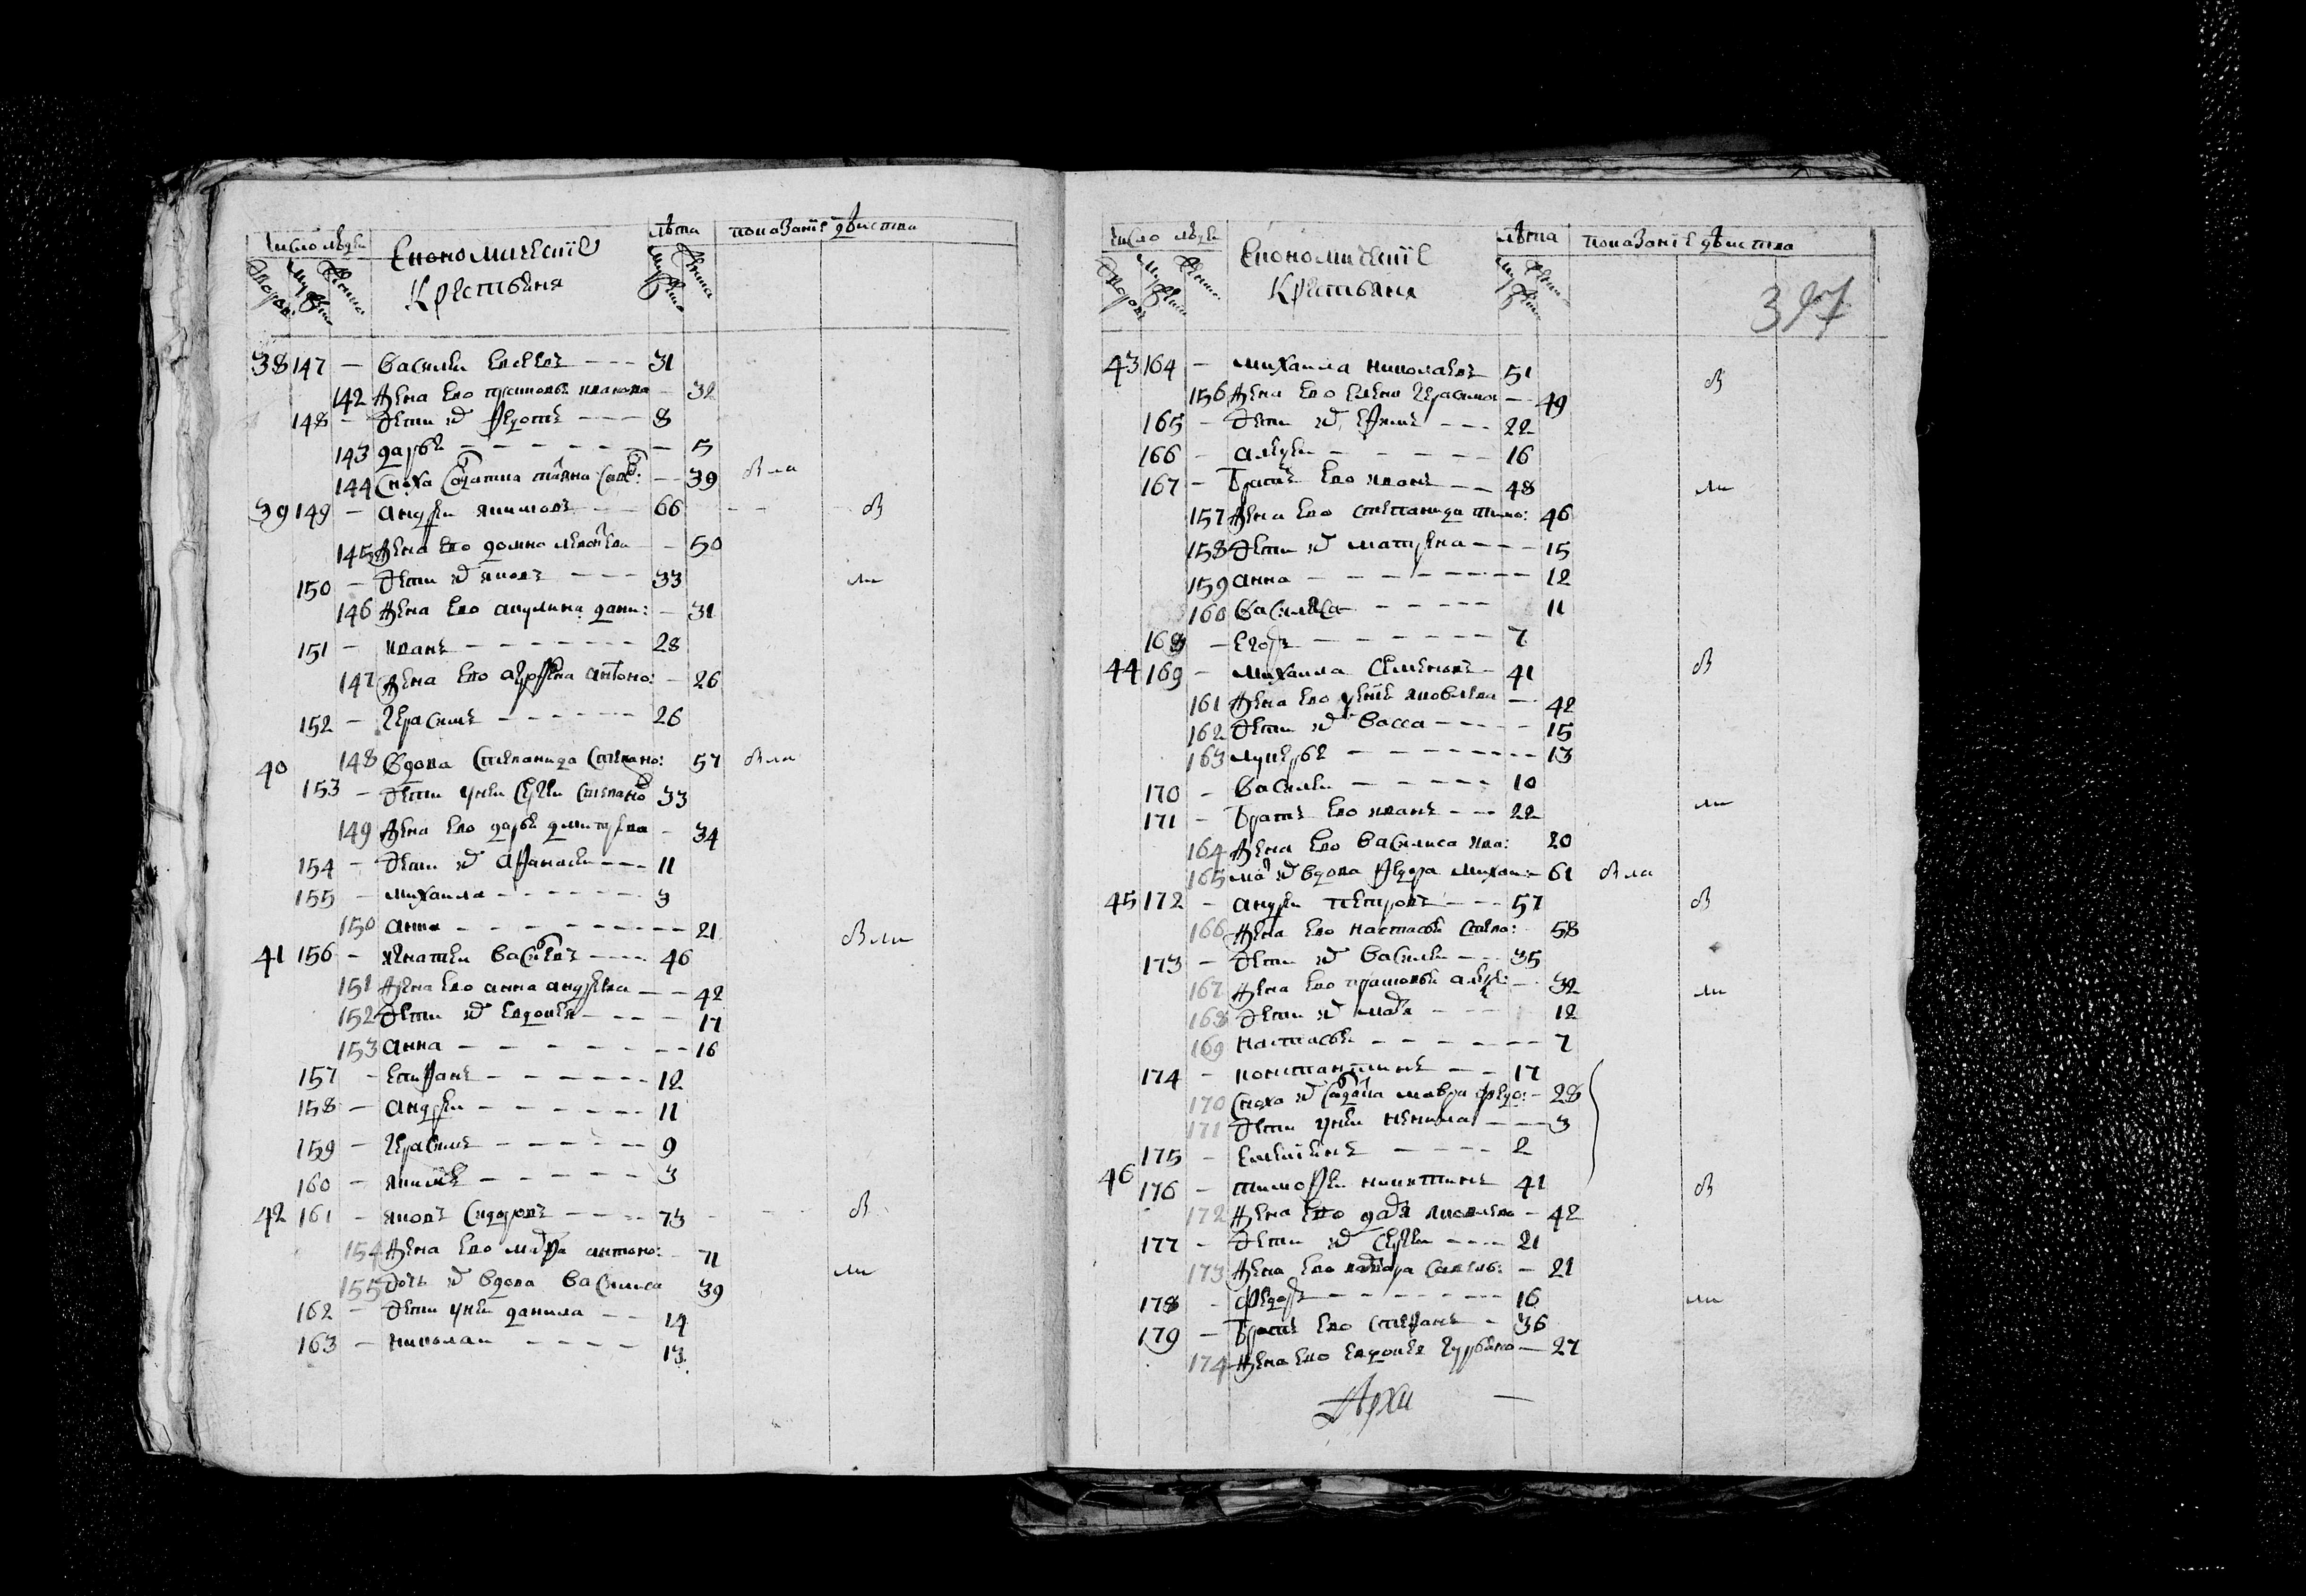 число людей Економическiе Крестьяня лѣта показанiе дѣиства
Дворовъ Мужеска Женска Мужеска Женска
38 147 — Василеи Евсѣевъ — 31
142 Жена ево Прасковья Иванова — 32
148 — Дети их Федотъ — 8
143 Дарья — 5
144 Сноха Салдатка Татьяна — 39
39 149 — Андреи Якимовъ — 66 в
145 Жена ево Домна — 50
150 — Дети их Яковъ — 33
146 Жена ево Акулина Дани: — 31
151 — Иванъ — 28
147 Жена ево Аграфена Антоно: — 26
152 — Герасимъ — 26
40 148 Вдова Степанида Степано: 57
153 — Дети у неи Сергеи Степано 33
149 Жена ево Дарья Дмитрева — 34
154 — Дети их Афанасеи — 11
155 — Михаила — 3
150 Анна — 21
41 156 — Игнатеи Васильевъ — 46
151 Жена ево Анна Андреева — 42
152 Дети их Евдокея — 17
153 Анна — 16
157 — Епифанъ — 12
158 — Андреи — 11
159 — Герасимъ — 9
160 — Якимъ — 3
42 161 — Яковъ Сидоровъ — 73 в
154 Жена ево Марфа Антоно: 71
155 Дочь их вдова Василиса 39
162 — Дети у неи Данила — 14
163 — Николаи — 13
число людей Економическiе Крестьяня лѣта показанiе дѣиства
Дворовъ Мужеска Женска Мужеска Женска
397
43 164 — Михаила Николаевъ 51 в
156 Жена ево Елена Герасимо — 49
165 — Дети их Ефимъ — 22
166 — Алексеи — 16
167 — Братъ ево Иванъ — 48
157 Жена ево Степанида Тимо: 46
158 Дети их Матрена — 15
159 Анна — 12
160 Василиса — 11
168 — Егоръ — 7
44 169 — Михаила Семеновъ — 41 в
161 Жена ево Ксения Яковлева — 42
162 Дети их Васса — 15
163 Лукерья — 13
170 — Василеи — 10
171 — Братъ ево Иванъ — 22
164 Жена ево Василиса Ива: 20
165 Мать их вдова Федора Михаи: — 61
45 172 — Андреи Петровъ — 57 в
166 Жена ево Настасья Степа: 58
173 — Дети их Василеи — 35
167 Жена ево Прасковья Алек: — 32
168 Дети их Марья — 12
169 Настасья — 7
174 — Константинъ — 17
170 Сноха их Салдатка Мавра Федо: — 28
171 Дети у неи Ненила — 3
175 — 2
46 176 — Тимофеи Никитинъ 41 в
172 Жена ево Дарья Яковлева — 42
177 — Дети их Сергеи — 21
173 Жена ево Варвара Савель: — 21
178 — Федоръ — 16
179 — Братъ ево Степанъ — 36
174 Жена ево Евдокея Гурьяно — 27
Архи